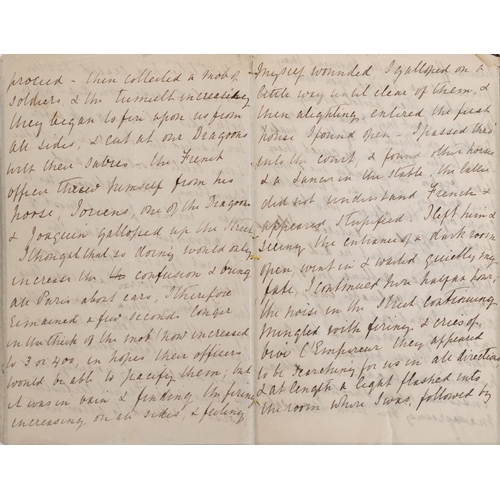 proceed - then collected a mob of
soldiers, & the tumult increasing
they began to fire upon us from
all sides, & cut at our Dragoons
with their Sabres - the French
officer threw himself from his
horse, one of the Dragoons
& Joaquin galloped up the Street
I thought that so doing would only
increase the confusion & bring
all Paris about ears, I therefore
remained a few seconds longer
in the thick of the mob (now increased
to 3 or 400, in hopes their officers
would be able to pacify them, but
it was in vain & finding the firing
increasing on all sides, & feeling
myself wounded, I galloped on a
little way until clear of them, &
then alighting, entered the first
house I found open - I passed thro'
into the court, & found other horses
& a Lancer in the stable, the latter
did not understand French &
appeared stupified. I left him &
seeing the entrance of a dark room
open, went in & waited quietly my
fate, I continued here half an hour,
the noise in the Street continuing
mingled with firing & cries of
vive l'Empereur they appeared
to be searching for us in all directions
& at length a light flashed into
the room where I was, followed by